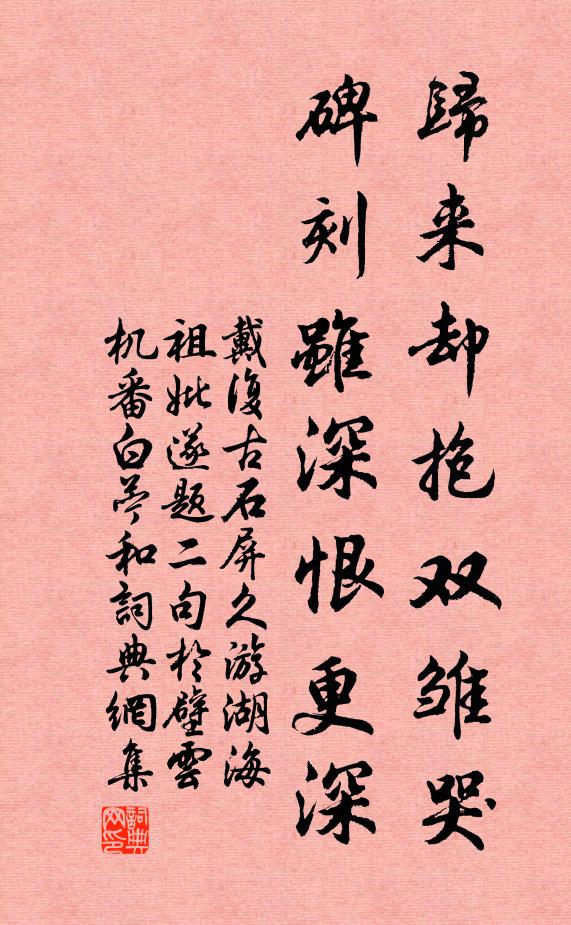 歸来却抱双雏哭
碑刻雖深恨更深
戴復古石屏久游湖海
祖妣遂题二句於壁雲
机番白苧和詞典網集
詞典网印